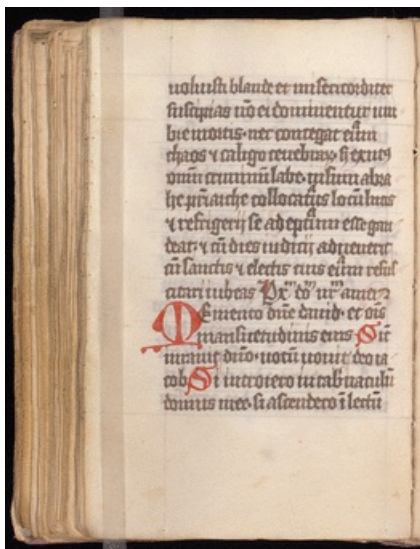 voluisti blande et misericorditer
suscipias nō ei dominentur um
bre mortis· nec contegat eūm
chaos ⁊ caligo tenebraꝝ· sꝫ exutꝰ
omī criminū labe· in sinu abra
he pr̄iarche collocatus locū lucis
⁊ refrigerij se adeptum esse gau
deat· ⁊ cū dies iudicij advenerit
cū sanctis ⁊ electis tuis eūm resus
citari iubeas
Memento dn̄e david· et oīs
mansuetudinis eius· Sic̄
iuravit dn̄o· votū vovit deo ia
cob Si introiero in tab'naculū
domus mee· si ascendero ī lectū